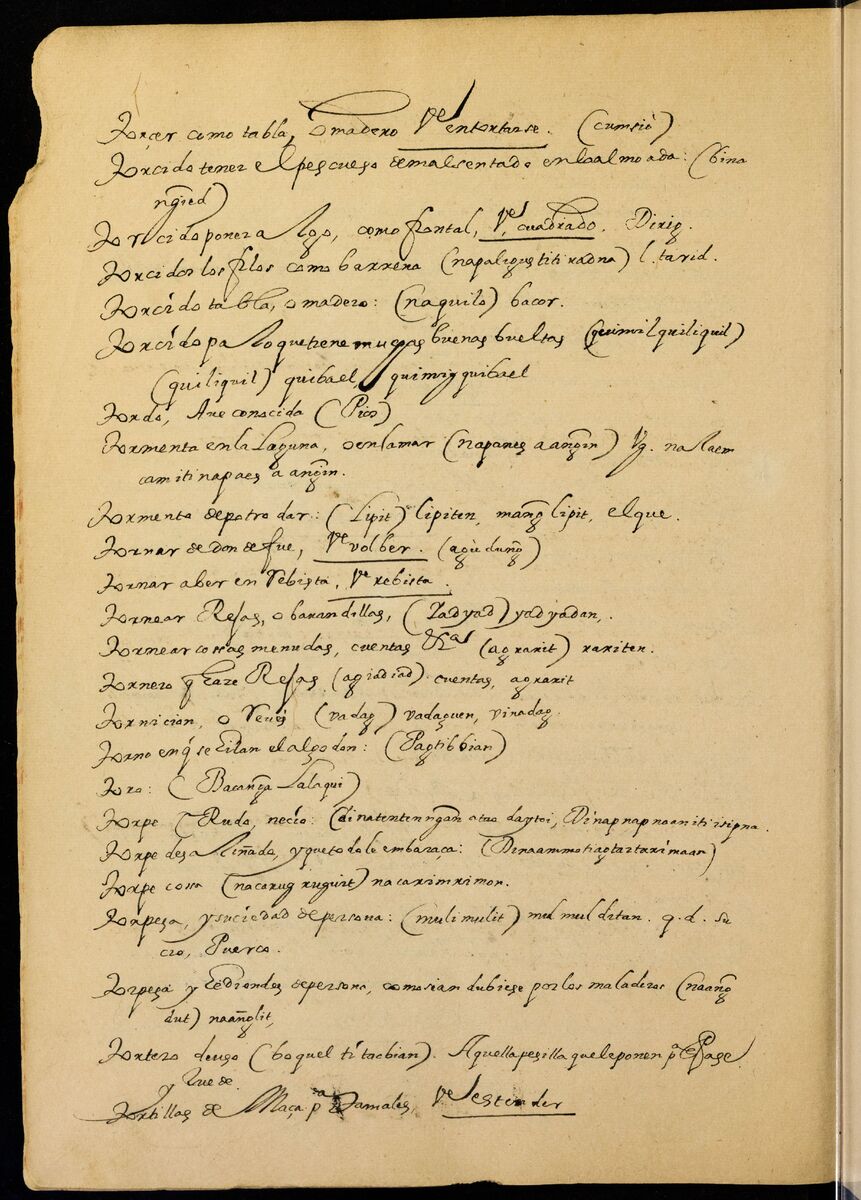 Torçer como tabla, o madero Vᵉ entortarse. (cumsiò)
Torcido tener el pescueço de mal sentado en la almoada: (bina
ngͫied)
Torcido poner algo, como frontal, Vᵉ cuadrado. Dirig.
Torcidos los filos como barrena (napaligus ti tiradna) l. tarid.
Torcido tabla, o madero: (naquilo) bacor.
Torcido palo que tiene muchas buenas bueltas (quimilquiliquil)
(quiliquil) quibael, quimiyquibael
Tordo, Ave conocida (Pico)
Tormenta en la Laguna, o en la mar (napanes a angin) Vg. nalaem
cami ti napaes a angin.
Tormento de potro dar: (Lipit) lipiten, mang lipit, el que.
Tornar de donde fue, Vᵉ volber. (agudung)
Tornar aber en Rebista, Vᵉ rebista.
Tornear Rejas, o barandillas, (Yadyad) yadyadan,
Tornear cossas menudas, cuentas &ᵃ (agrarit) rariten.
Tornero q̃ haze Rejas (agiadiad) cuentas, agrarit
Tornicion, o (vadag) vadaguen, vinadag.
Torno en q̃ se hilan el algodon: (Pagtibbian)
Toro: (Bacanga Lalaqui)
Torpe (Rudo, necio: (dinatentenngan atao daytoi, Dinapnapnoan iti isipna.
Torpe desaliñado, y que todo le embaraça:
Torpe cossa (nacarugruguit) nacarimrimon.
Torpeça, y suciedad de persona: (mulimulit) mulmulditan. q. d. su
cio, Puerco.
Torpeça y hediondes de persona, como si andubiese por los maladeros (naang
dut) naanglit,
Tortero de uso (boquel ti taobian). Aquella pesilla que le ponen pᵃ q̃ Pase
y
Tortillas de Maça pᵃ Tamales, Vᵉ estender